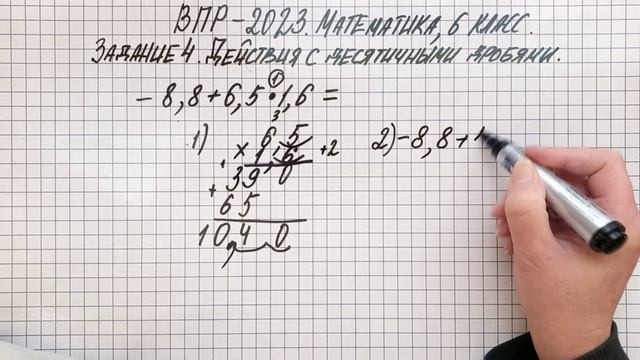 ВПР-2023. МАТЕМАТИКА, 6 КЛАСС.
ЗАДАНИЕ 4. ДЕЙСТВИЯ С ДЕСЯТИЧНЫМИ ДРОБЯМИ.
1
-8,8+6,5•1,6=
3
1) 6,5 2)-8,8+1
× 1,6 +2
+ 39 0
65
10,40